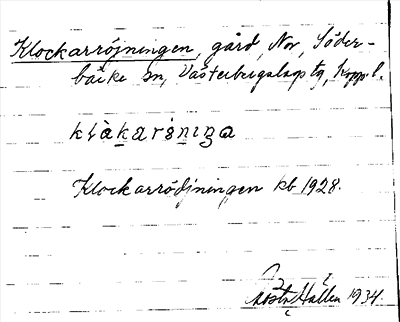 Klockarröjningen, gård, Nor, Söder-
bärke sn, Västerbergslags tg, Kopp. l.
klȧkarö̀niŋa
Klockarrödjningen kb 1928.
Gösta Hallen 1934.